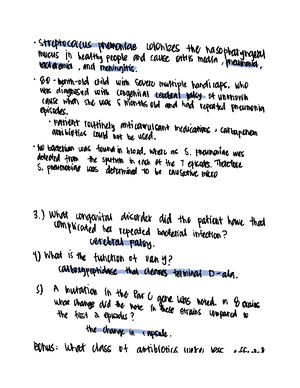 • Streptococcus pneumoniae colonizes the nasopharyngeal
mucus in healthy people and cause otitis media, pneumonia,
bacteremia, and meningitis.
-month-old child with severe multiple handicaps, who
was diagnosed with congenital cerebral palsy of unknown
cause when she was 5 months old and had repeated pneumonia
episodes.
• Patient routinely anticonvulsant medications, carbapenem
antibiotics could not be used.
• No bacterium was found in blood, where as S. pneumoniae was
detected from the sputum in each of the 7 episodes. Therefore
S. pneumoniae was determined to be causative micro
3.) What congenital disorder did the patient have that
complicated her repeated bacterial infection?
cerebral palsy.
4) What is the function of van Y?
carboxypeptidase that cleaves terminal D-ala.
5) A mutation in the Par C gene was noted. In 8 strains
what change did the note in these strains compared to
the first 2 episodes?
the change in capsule.
Bonus: What class of antibiotics were less